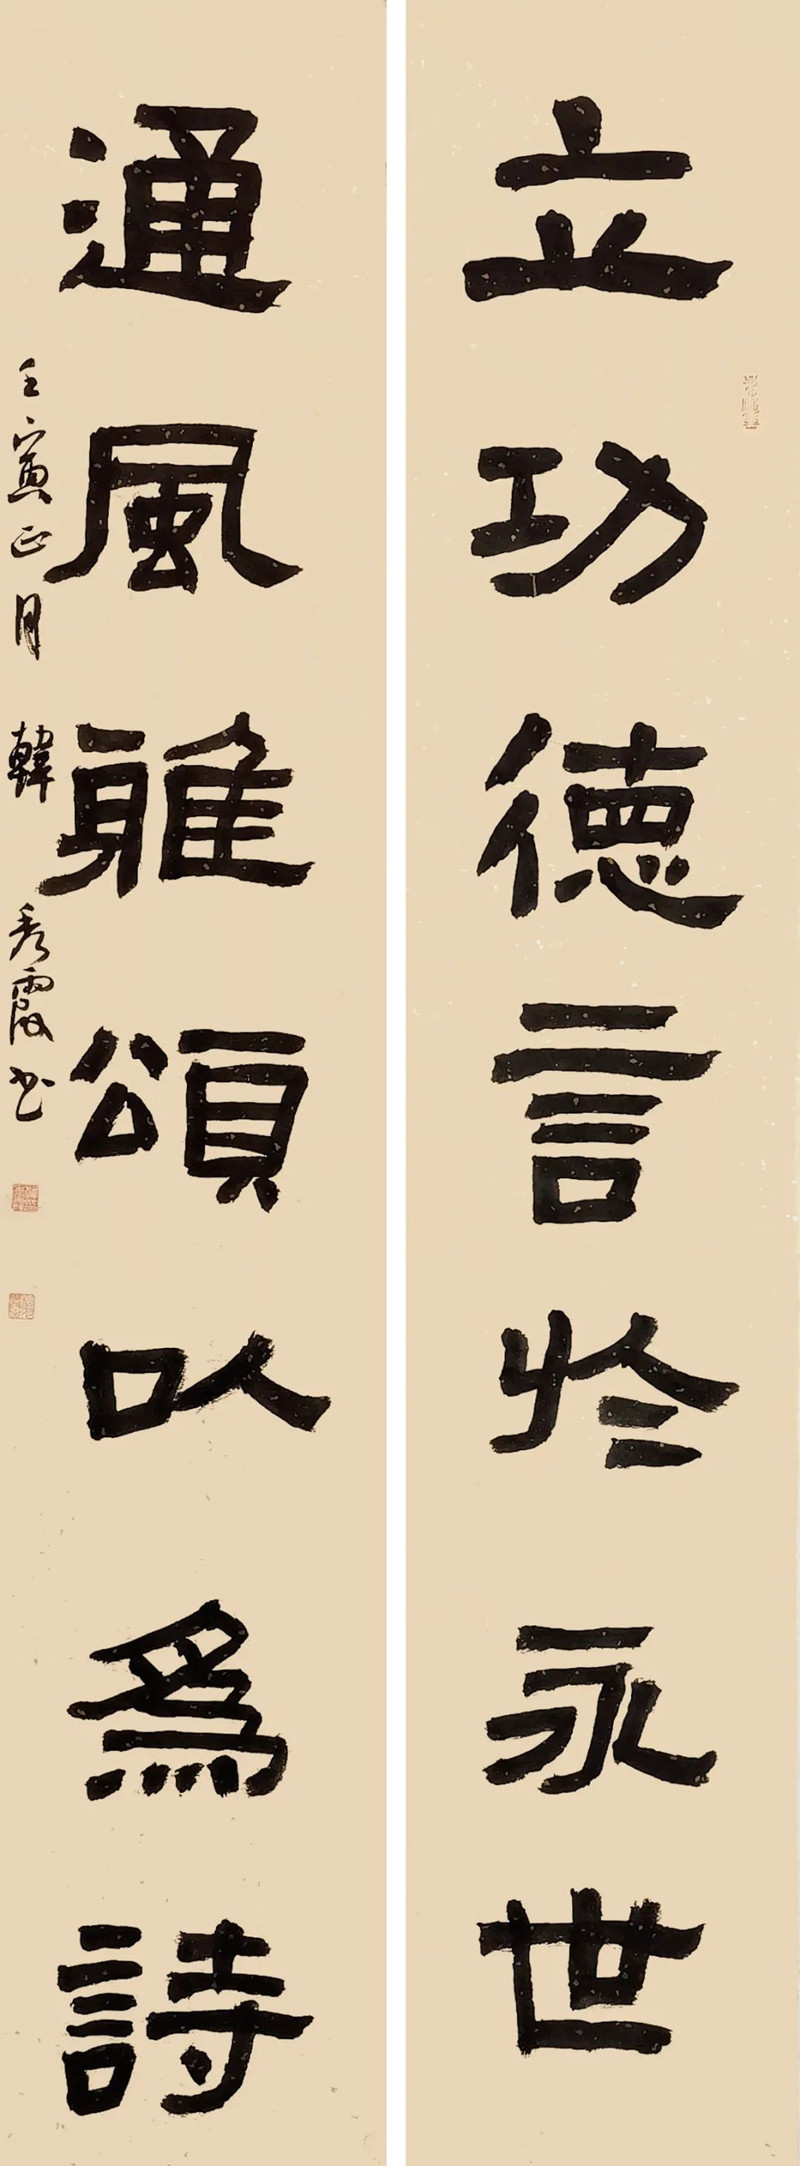 立功德言於永世
通風雅頌以為詩
壬寅正月韓秀霞书